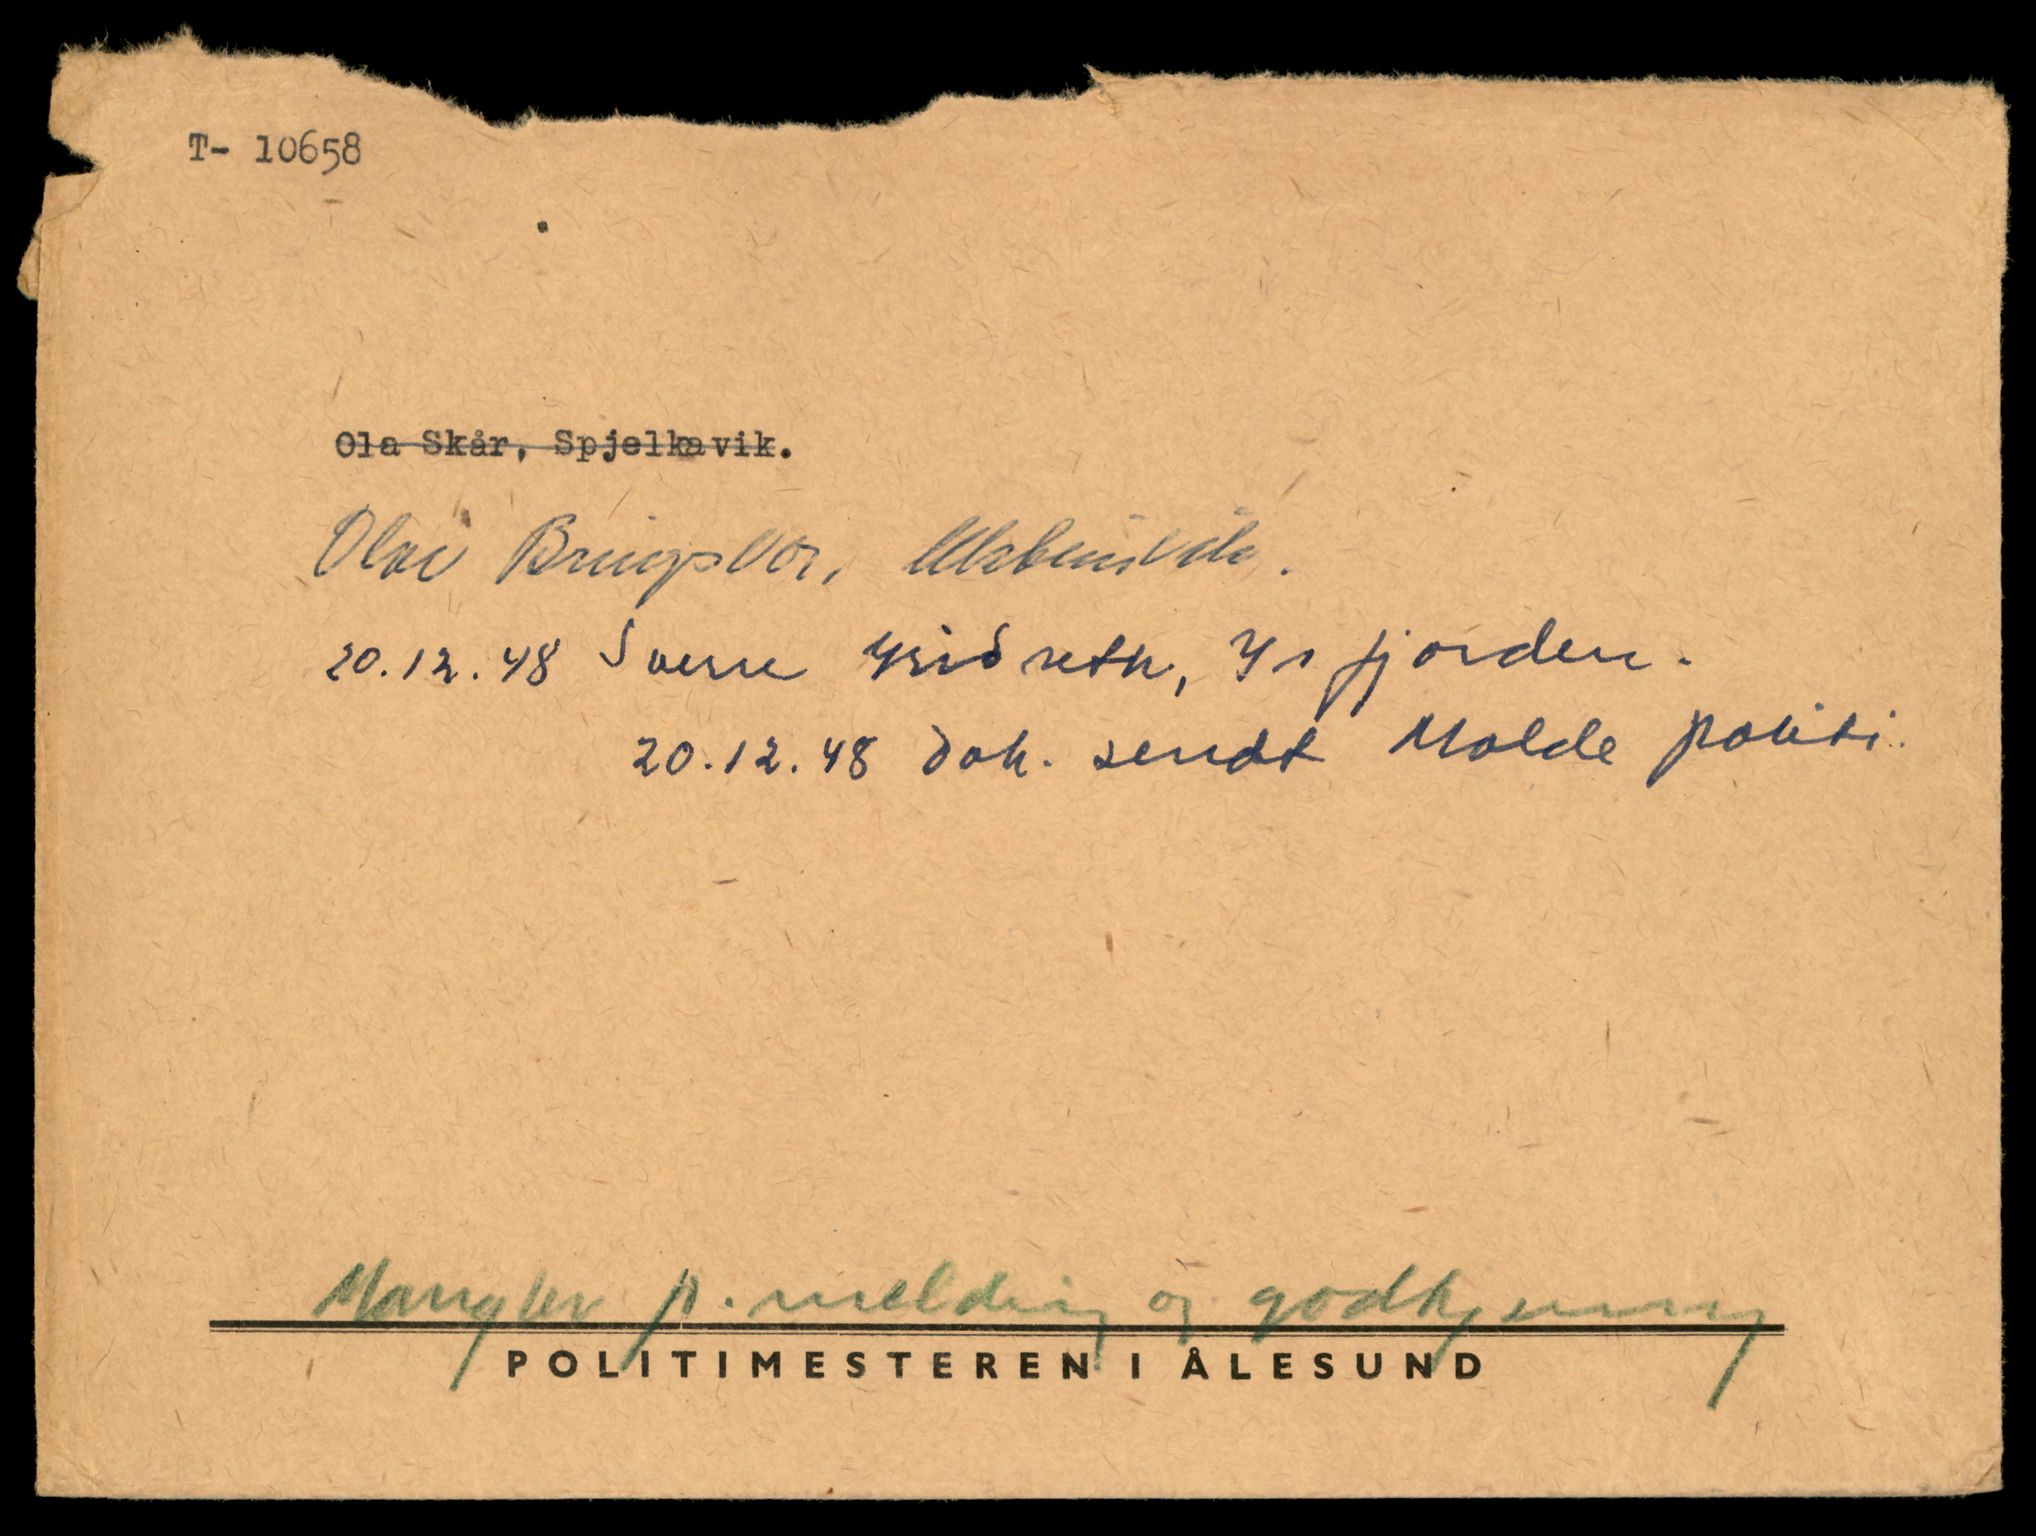 T- 10658
Ola Skår, Spjelkavik.
Olav Bringsvor,
20.12.48 Sverre Griseth, Isfjorden.
20.12.48 dok. sendt Molde politi.
Mangler p. melding og godkjenning
POLITIMESTEREN I ÅLESUND